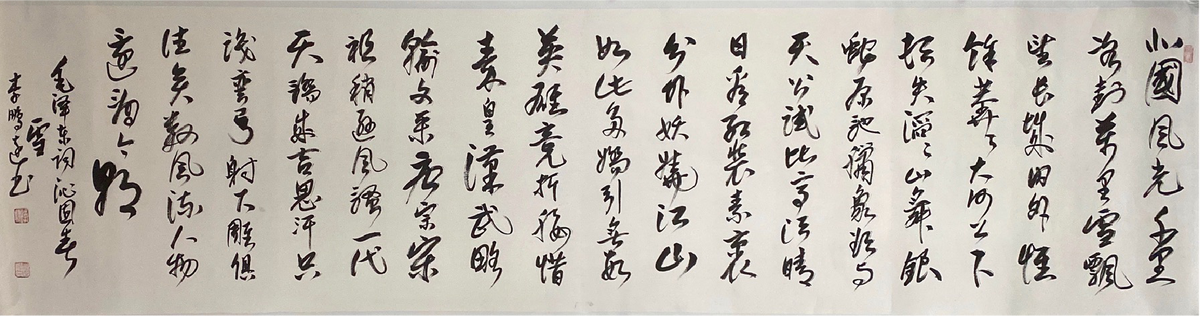 北國風光千里
冰封萬里雪飄
望長城内外惟
餘莽々大河上下
頓失滔々山舞銀
蛇原馳蠟象欲与
天公試比高須晴
日看紅裝素裹
分外妖嬈江山
如此多嬌引無數
英雄竞折腰惜
秦皇漢武略
輸文采唐宗宋
祖稍遜風騷一代
天驕成吉思汗只
識彎弓射大雕俱
往矣數風流人物
還看今朝
毛泽东词沁园春
雪
李鵬远书